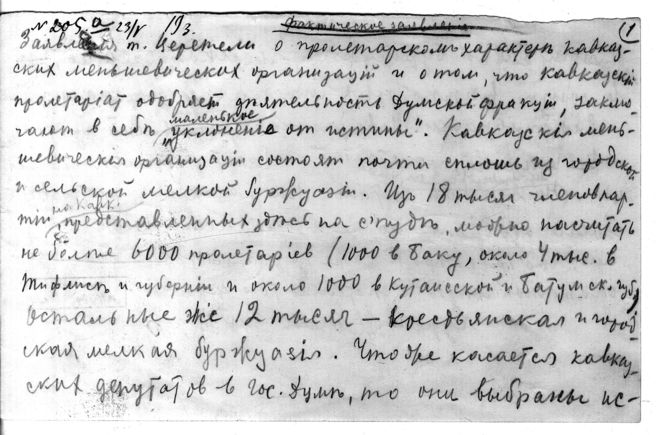 № 205 а 23/V 193. Фактическое заявленіе (1
Заявленія т. Церетели о пролетарскомъ характерѣ кавказ-
скихъ меньшевическихъ организацій и о том, что кавказскій
пролетаріат одобряет дѣятельность Думской фракціи, заклю-
маленькое
чают в себѣ „уклоненіе от истины". Кавказскія мень-
шевическія организаціи состоят почти сплошь из городской
и сельской мелкой буржуазіи. Из 18 тысяч членов пар-
на Кавк.
тіи, представленных здѣсь на съѣздѣ, можно насчитать
не болѣе 6000 пролетаріев (1000 в Баку, около 4 тыс. в
Тифлисѣ и губерніи и около 1000 в Кутаисской и Батумск. губ.)
Остальные же 12 тысяч — крестьянская и город-
ская мелкая буржуазія. Что же касается кавказ-
ских депутатов в гос. Думѣ, то они выбраны ис-